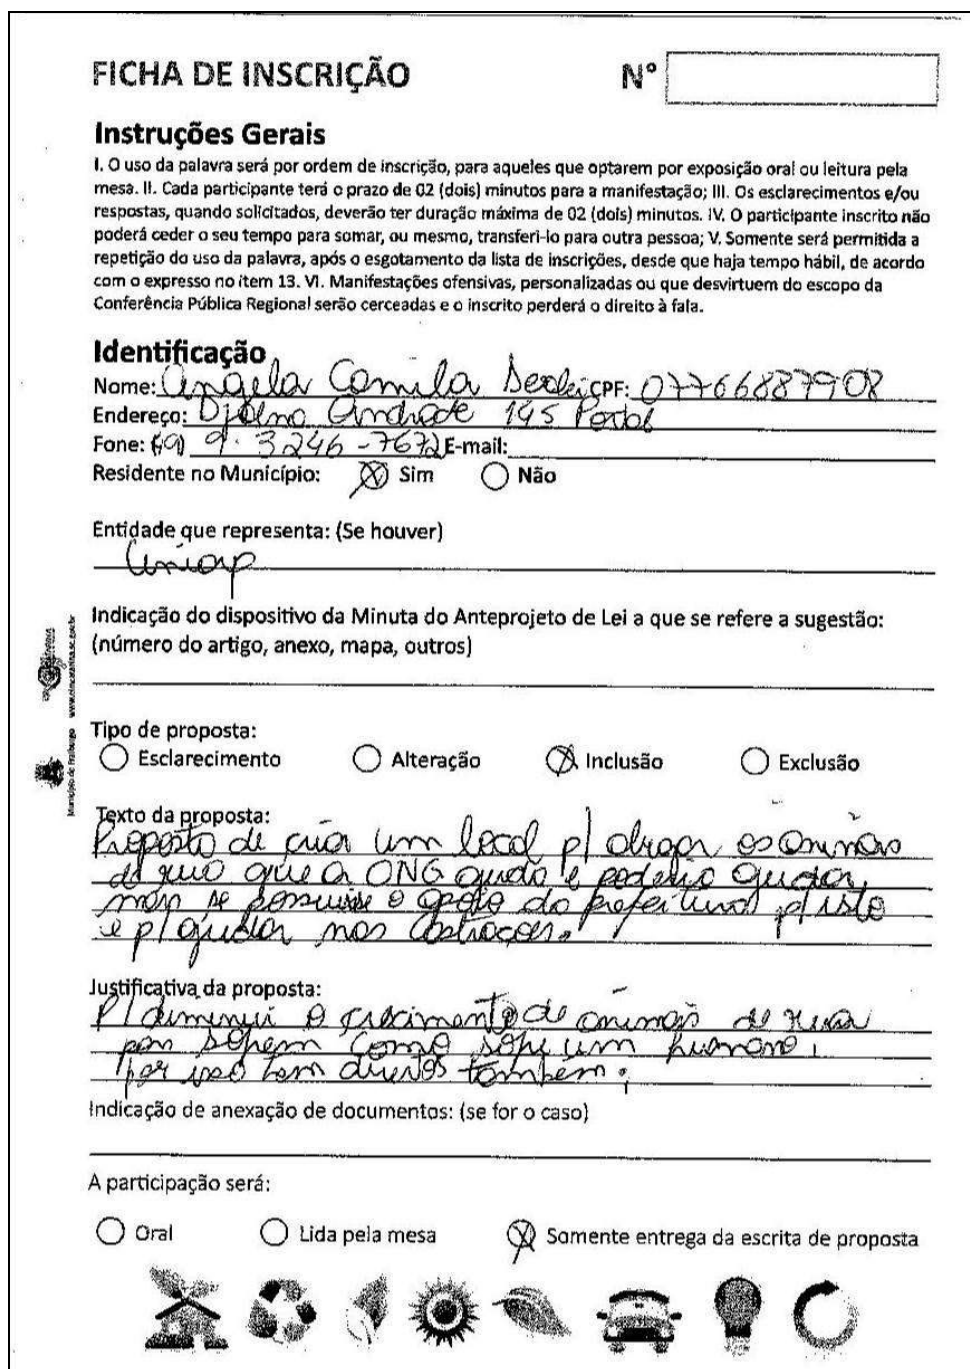 FICHA DE INSCRIÇÃO
Nº
Instruções Gerais
I. O uso da palavra será por ordem de inscrição, para aqueles que optarem por exposição oral ou leitura pela
mesa. II. Cada participante terá o prazo de 02 (dois) minutos para a manifestação; III. Os esclarecimentos e/ou
respostas, quando solicitados, deverão ter duração máxima de 02 (dois) minutos. IV. O participante inscrito não
poderá ceder o seu tempo para somar, ou mesmo, transferi-lo para outra pessoa; V. Somente será permitida a
repetição do uso da palavra, após o esgotamento da lista de inscrições, desde que haja tempo hábil, de acordo
com o expresso no item 13. VI. Manifestações ofensivas, personalizadas ou que desvirtuem do escopo da
Conferência Pública Regional serão cerceadas e o inscrito perderá o direito à fala.
Identificação
Nome: Angela Camila CPF: 07766887908
Endereço: Djalma Andrade 145
Fone: (49) 9.3246-7672 E-mail:
Residente no Município: Sim Não
Entidade que representa: (Se houver)
Uniap
Indicação do dispositivo da Minuta do Anteprojeto de Lei a que se refere a sugestão:
(número do artigo, anexo, mapa, outros)
Município de Fraiburgo
Tipo de proposta:
Esclarecimento Alteração Inclusão Exclusão
Texto da proposta:
Proposta de criar um local p/ abrigar os animais
de rua que a ONG ajuda e poderia ajudar,
mais se possuisse o apoio da prefeitura p/ isto
e p/ ajudar nas castraçoes.
Justificativa da proposta:
P/ diminui o crescimento de animais de rua
pois sofrem como sofre um humano,
por isso tem direitos também.
Indicação de anexação de documentos: (se for o caso)
A participação será:
Oral Lida pela mesa Somente entrega da escrita de proposta